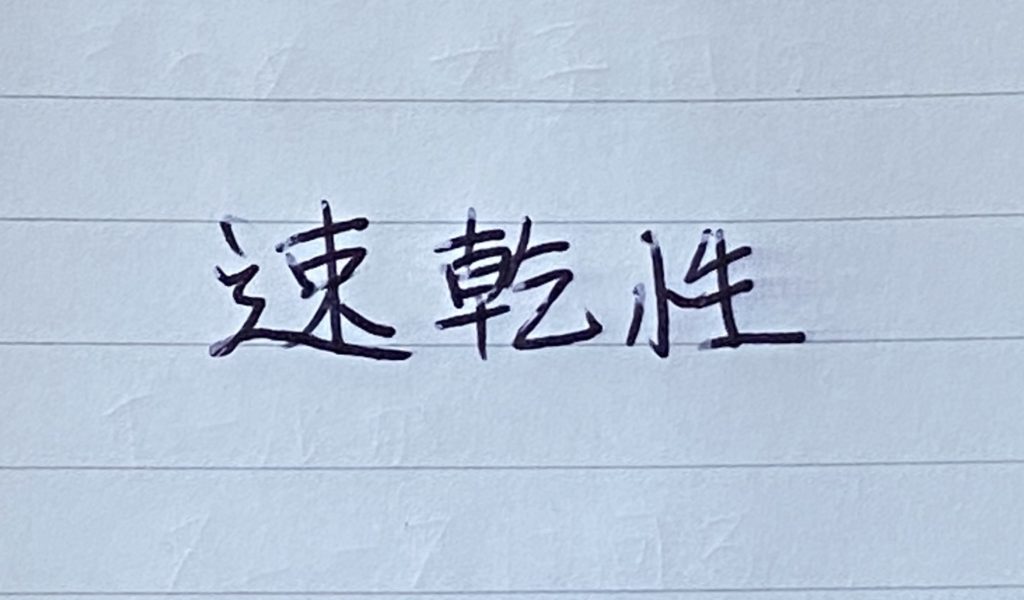 速乾性